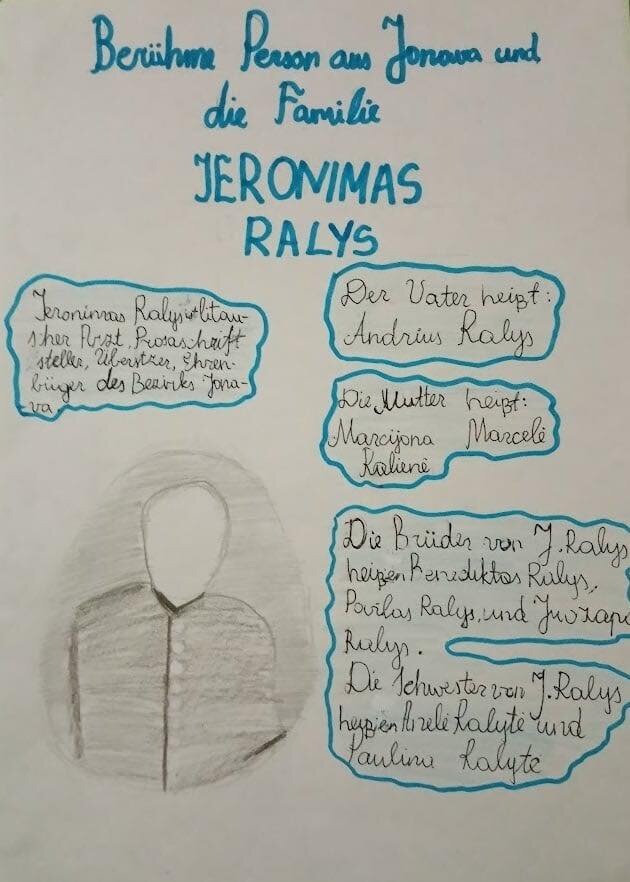 Berühme Person aus Jonava und
die Familie
JERONIMAS
RALYS
Jeronimas Ralys ist litau-
scher Arzt, Prosaschrift
steller, Überstzer, Ehren-
bürger des Bezirks Jona-
va.
Der Vater heißt:
Andrius Ralys
Die Mutter heißt:
Marcijona Marcelė
Kalienė
Die Brüder von J. Ralys
heißen Benediktas Ralys,
Povilas Ralys, und Juozapa
Ralys.
Die Schwester von J. Ralys
heißen Anelė Ralytė und
Paulina Ralytė